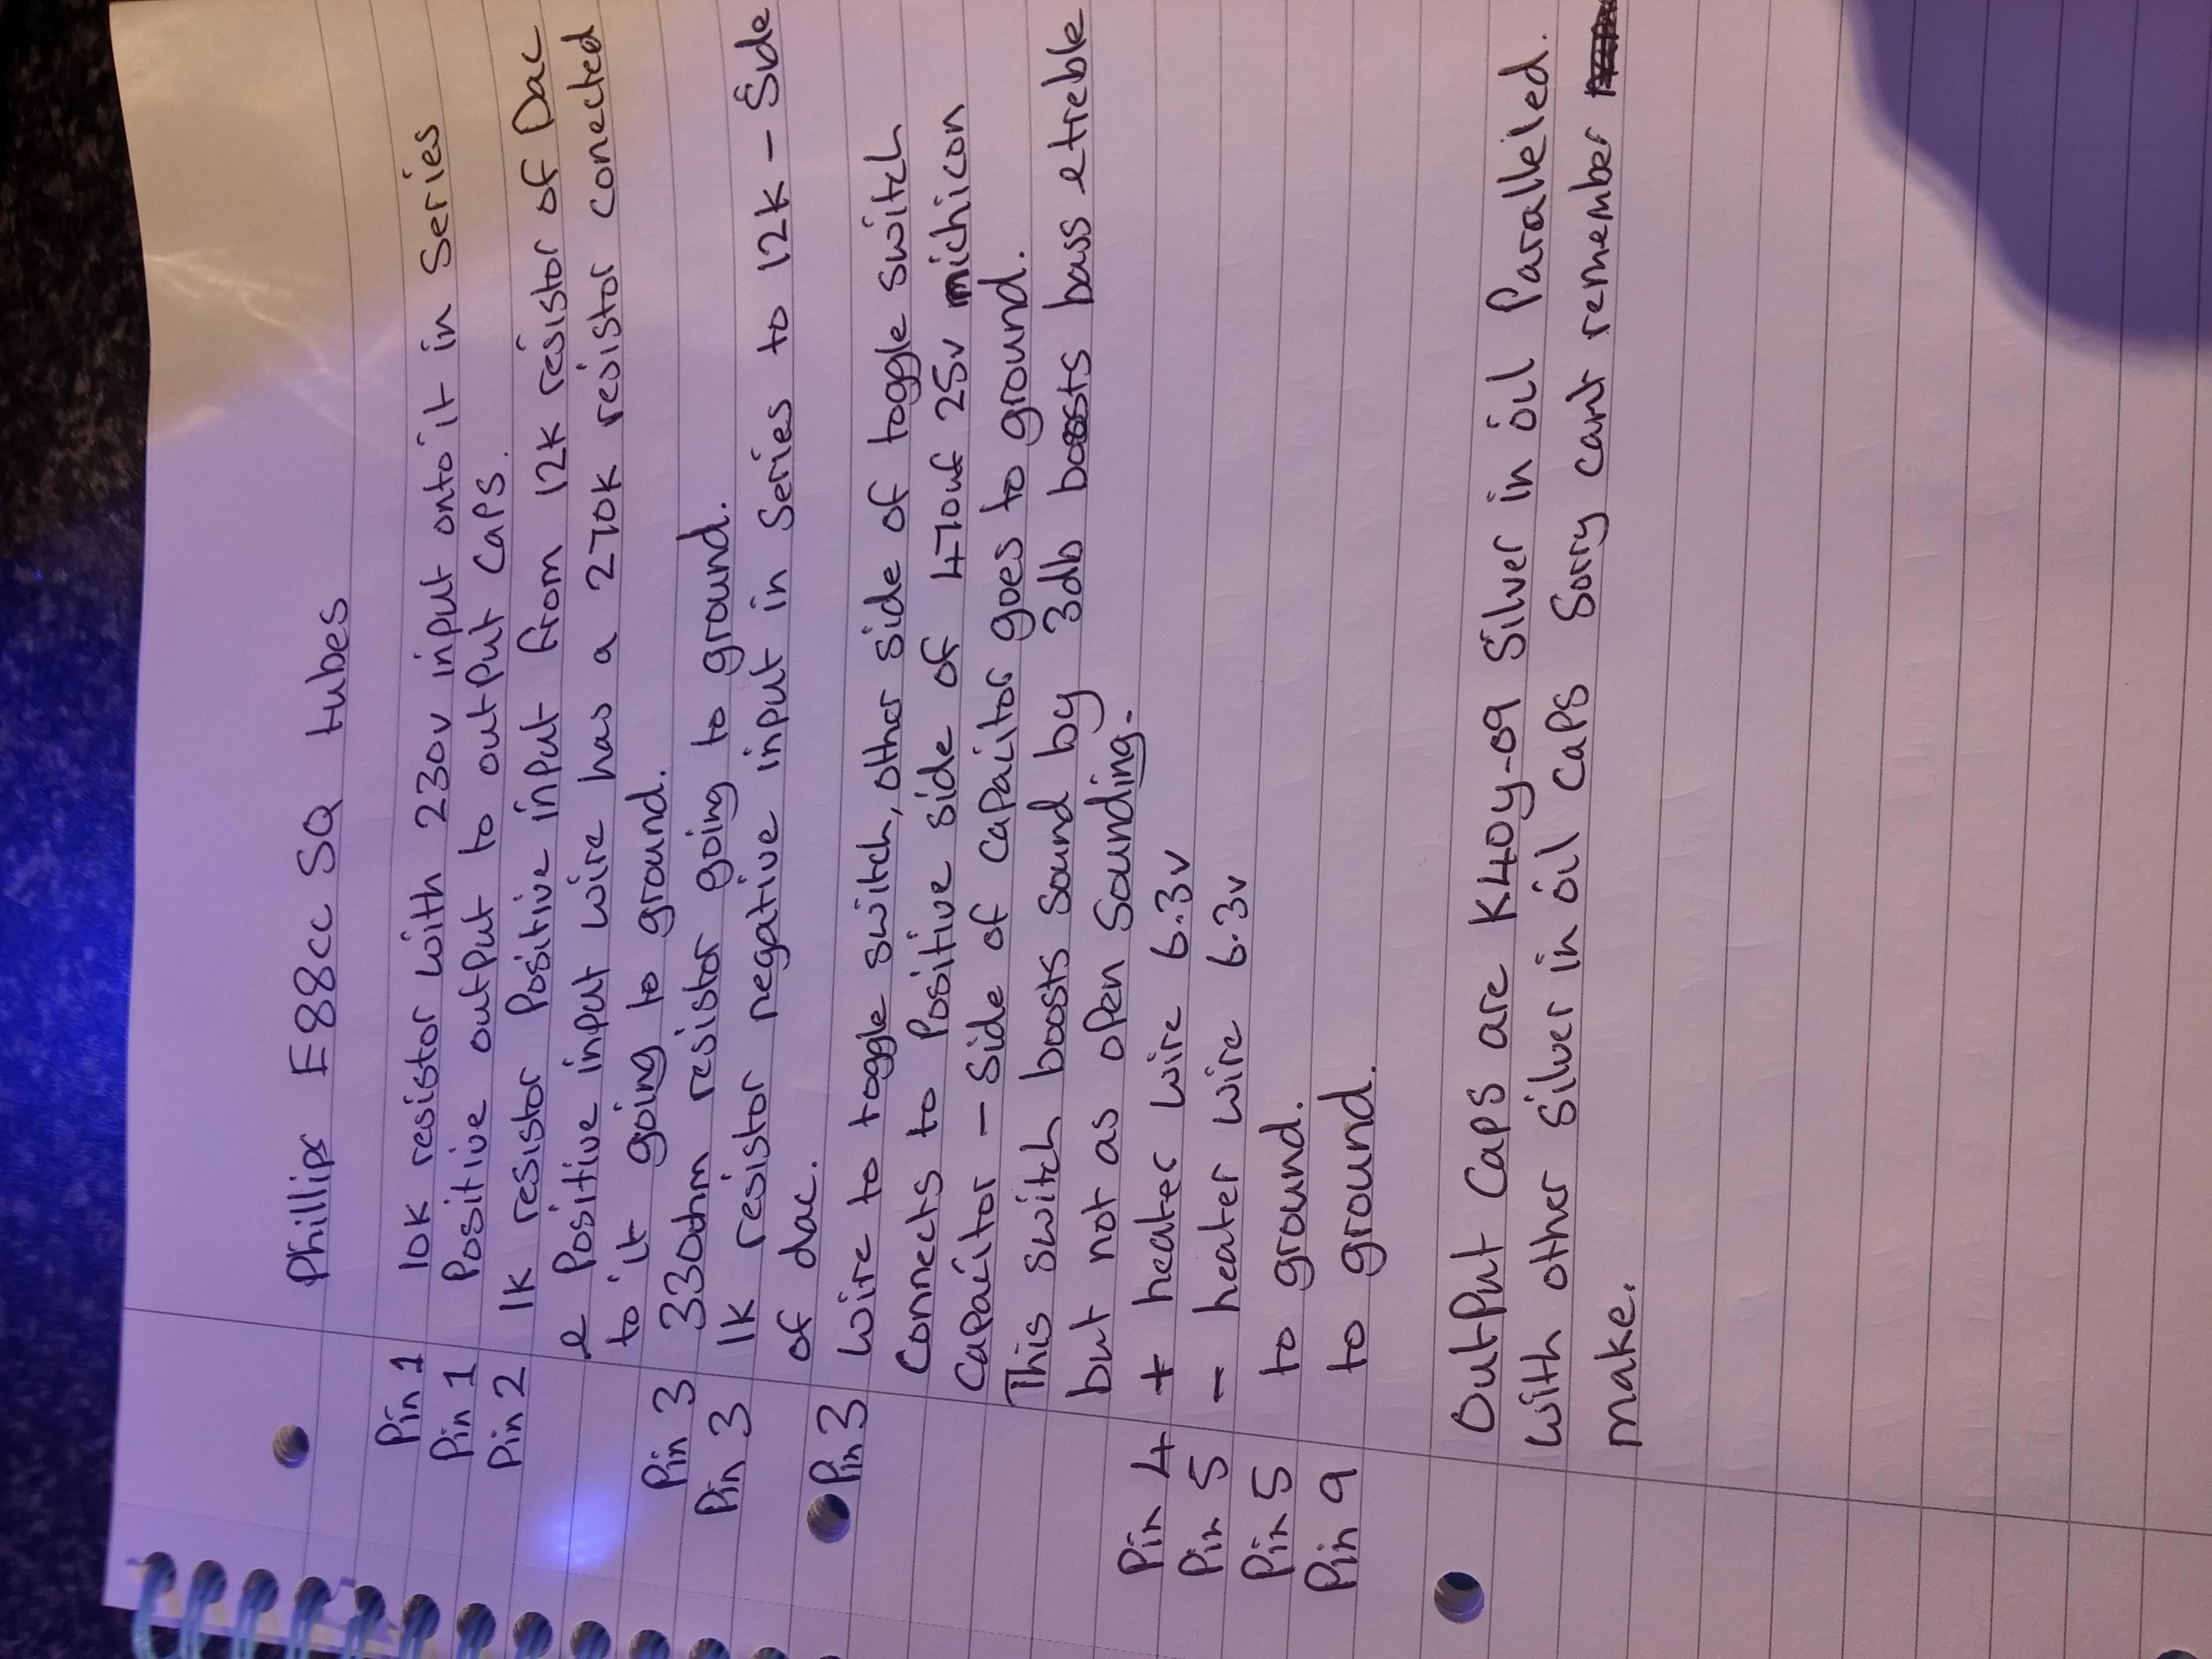 Phillips E88cc SQ tubes
Pin 1 10k resistor with 230v input onto it in series
Pin 1 Positive output to output caps.
Pin 2 1k resistor Positive input from 12k resistor of Dac
e Positive input wire has a 270k resistor conected
to it going to ground.
Pin 3 330ohm resistor going to ground.
Pin 3 1k resistor negative input in series to 12k - Side
of dac.
Pin 3 wire to toggle switch, other side of toggle switch
connects to Positive side of 470uf 25v michicon
capacitor - side of capaitor goes to ground.
This switch boosts sound by 3db boosts bass e treble
but not as open sounding.
Pin 4 + heater wire 6.3v
Pin 5 - heater wire 6.3v
Pin 5 to ground.
Pin 9 to ground.
OutPut caps are K40y-09 silver in oil Paralleled.
with other silver in oil caps sorry cant remember
make.